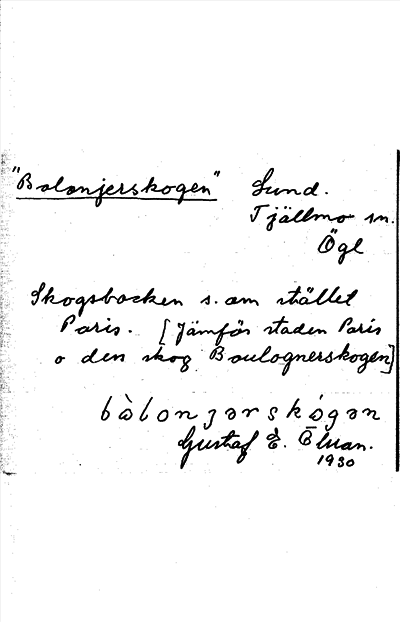 "Bolonjerskogen" Lund.
Tjällmo sn.
Ögl
Skogsbacken s. om stället
Paris. [Jämför staden Paris
o den skog Boulognerskogen]
Gustaf E.
1930